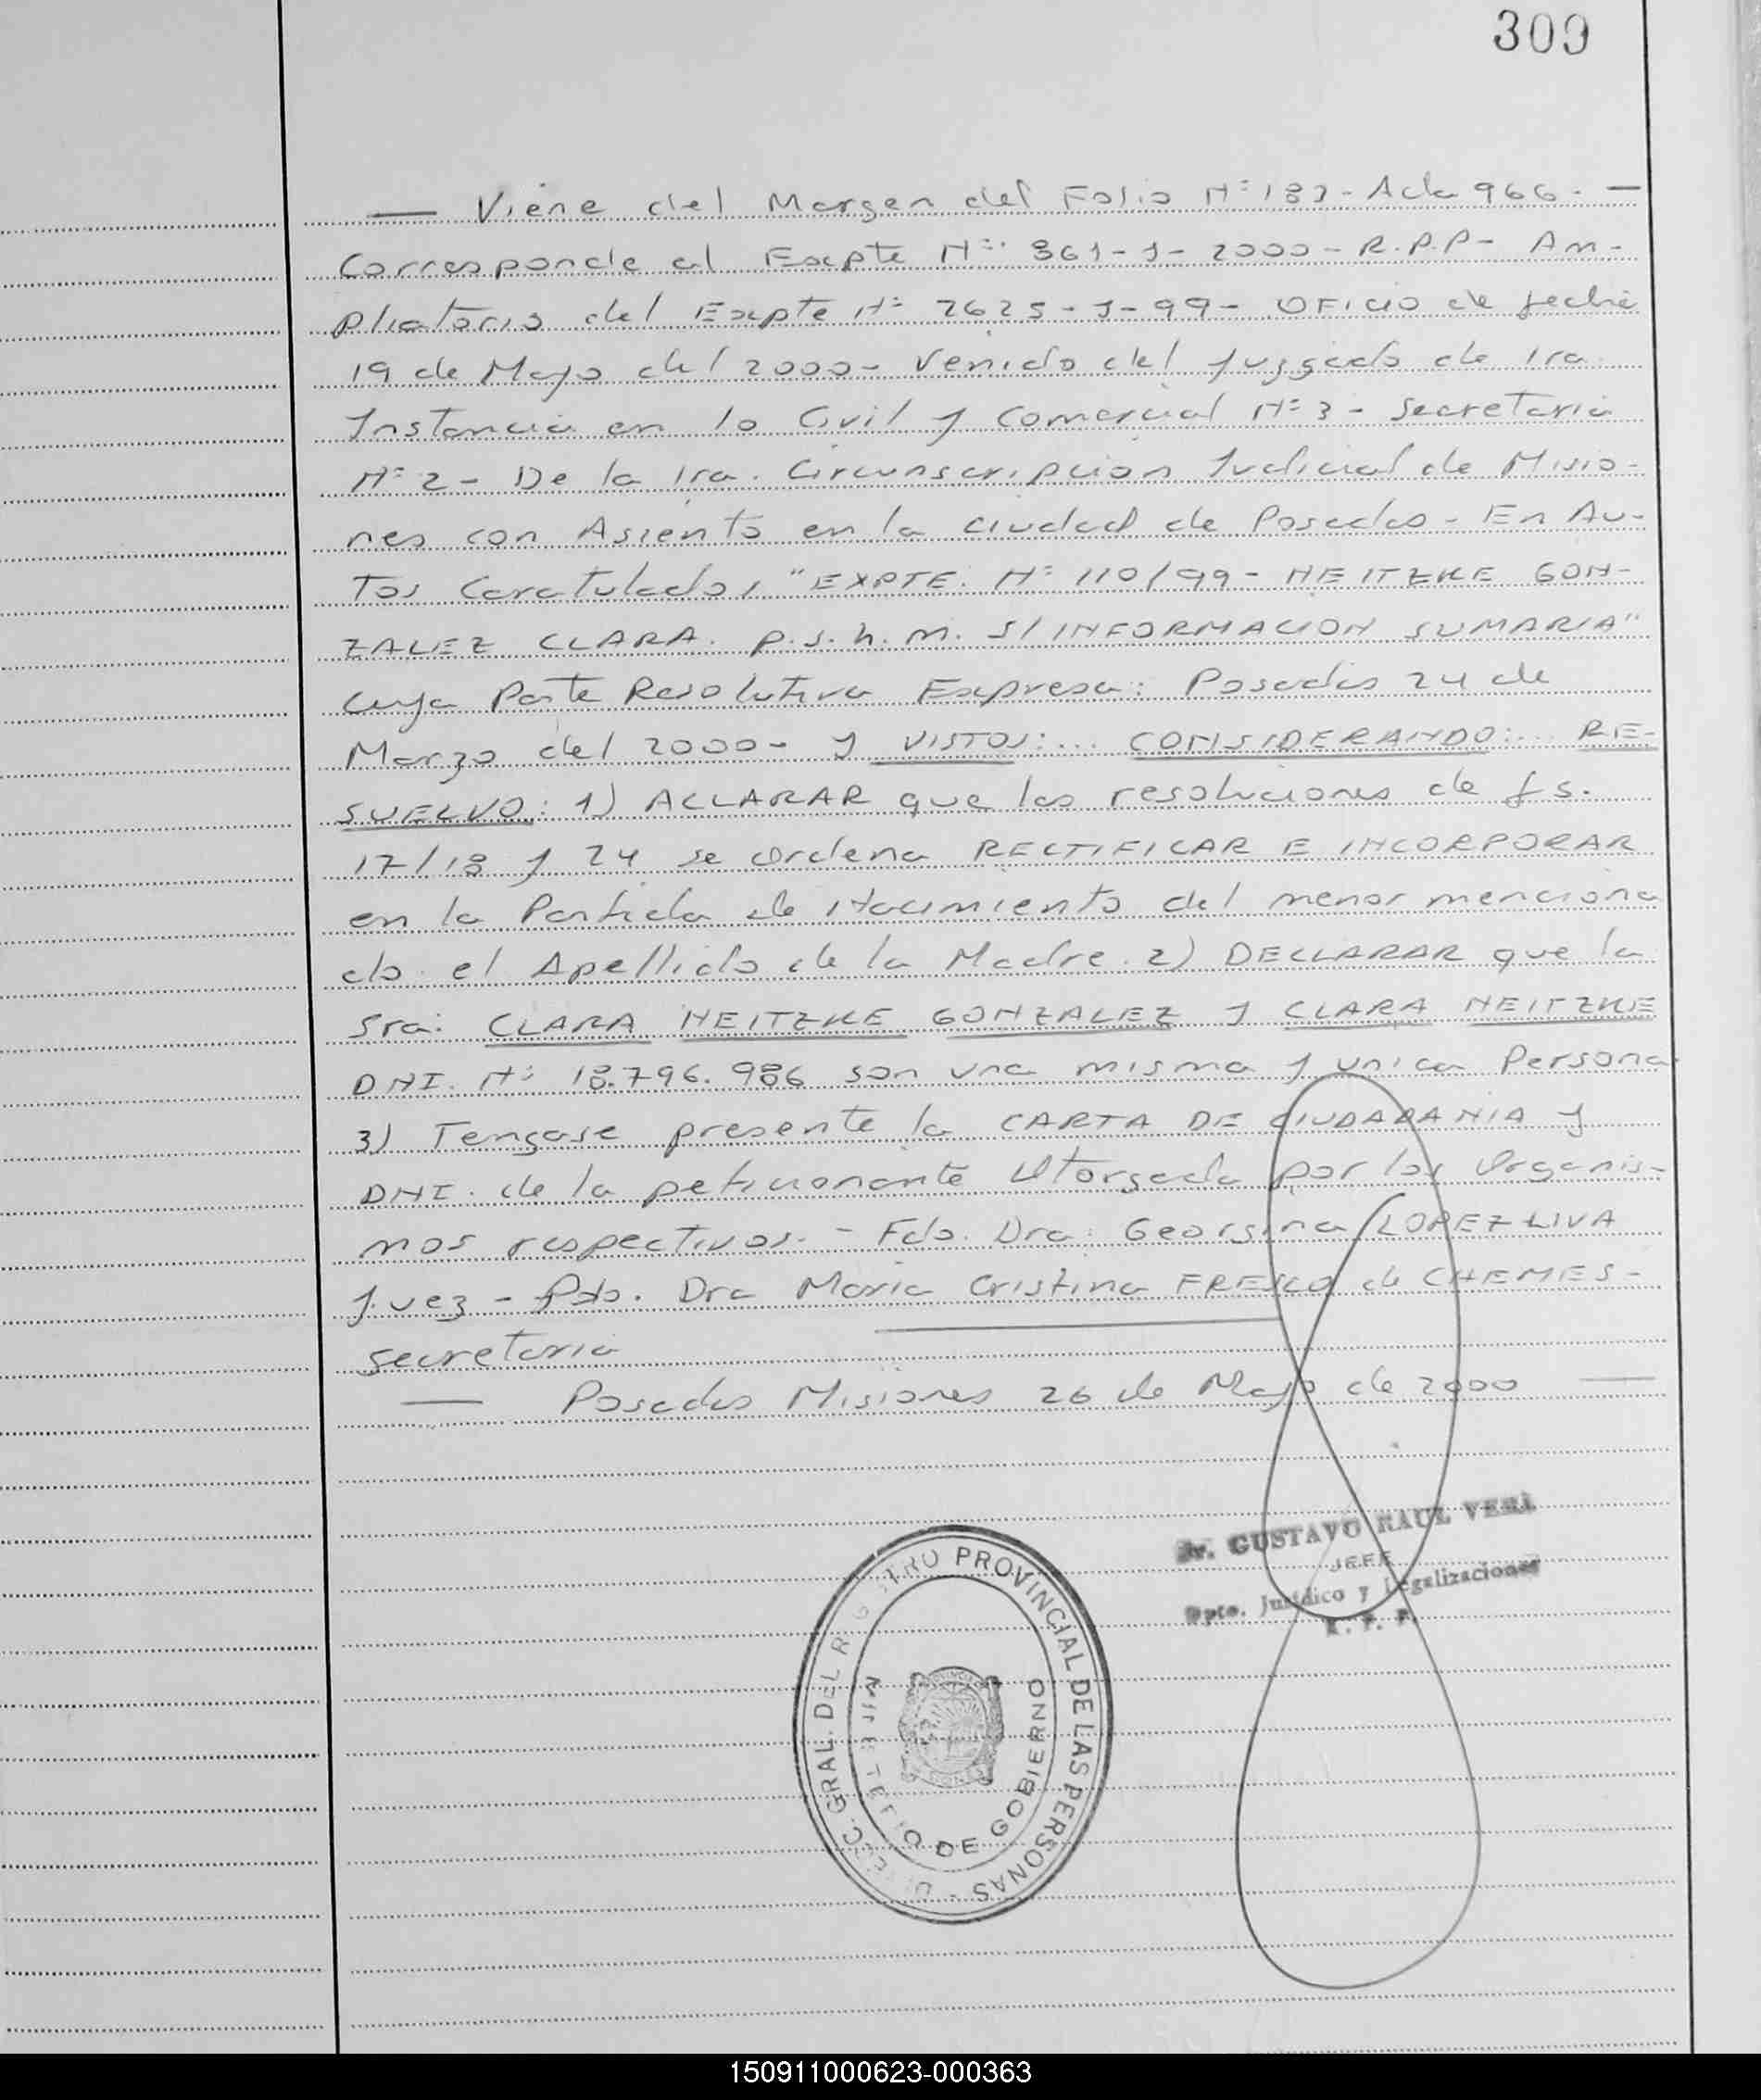 309
— Viene del Margen del Folio Nº 183 - Acta 966. —
Corresponde al Exepte Nº. 861-J-2000 - R.P.P - Am-
pliatorio del Exepte Nº 2625-J-99 - OFicio de fecha
19 de Mayo del 2000 - Venido del Juzgado de 1ra
Instancia en lo Civil y Comercial Nº 3 - Secretaria
Nº 2 - De la 1ra. Circunscripcion Judicial de Misio-
nes con Asiento en la ciudad de Posadas - En Au-
tos Caratulados "EXPTE. Nº 110/99 - NEITZKE GON-
ZALEZ CLARA. p.s.h.m. S/ INFORMACION SUMARIA"
cuya Parte Resolutiva Expresa: Posadas 24 de
Marzo del 2000 - y VISTOS:... CONSIDERANDO:... RE-
SUELVO: 1) ACLARAR que las resoluciones de fs.
17/18 y 24 se ordena RECTIFICAR E INCORPORAR
en la Partida de Nacimiento del menor menciona
do el Apellido de la Madre. 2) DECLARAR que la
Sra: CLARA NEITZKE GONZALEZ y CLARA NEITZKE
DNI. Nº 18.796.986 son una misma y unica Persona
3) Tengase presente la CARTA DE CIUDADANIA y
DNI. de la peticionante Otorgada por los Organis-
mos respectivos. - Fdo. Dra. Georgina LOPEZ LIVA
Juez - Fdo. Dra Maria Cristina FRESCO de CHEMES -
secretaria
— Posadas Misiones 26 de Mayo de 2000 —
Dr. GUSTAVO RAUL VERA
JEFE
Dpto. Jurídico y Legalizaciones
R. P. P.
DIREC. GRAL. DEL REGISTRO PROVINCIAL DE LAS PERSONAS -
MINISTERIO DE GOBIERNO
150911000623-000363